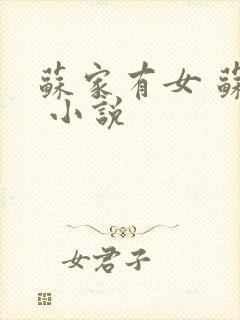 蘇家有女 蘇
小說
女君子